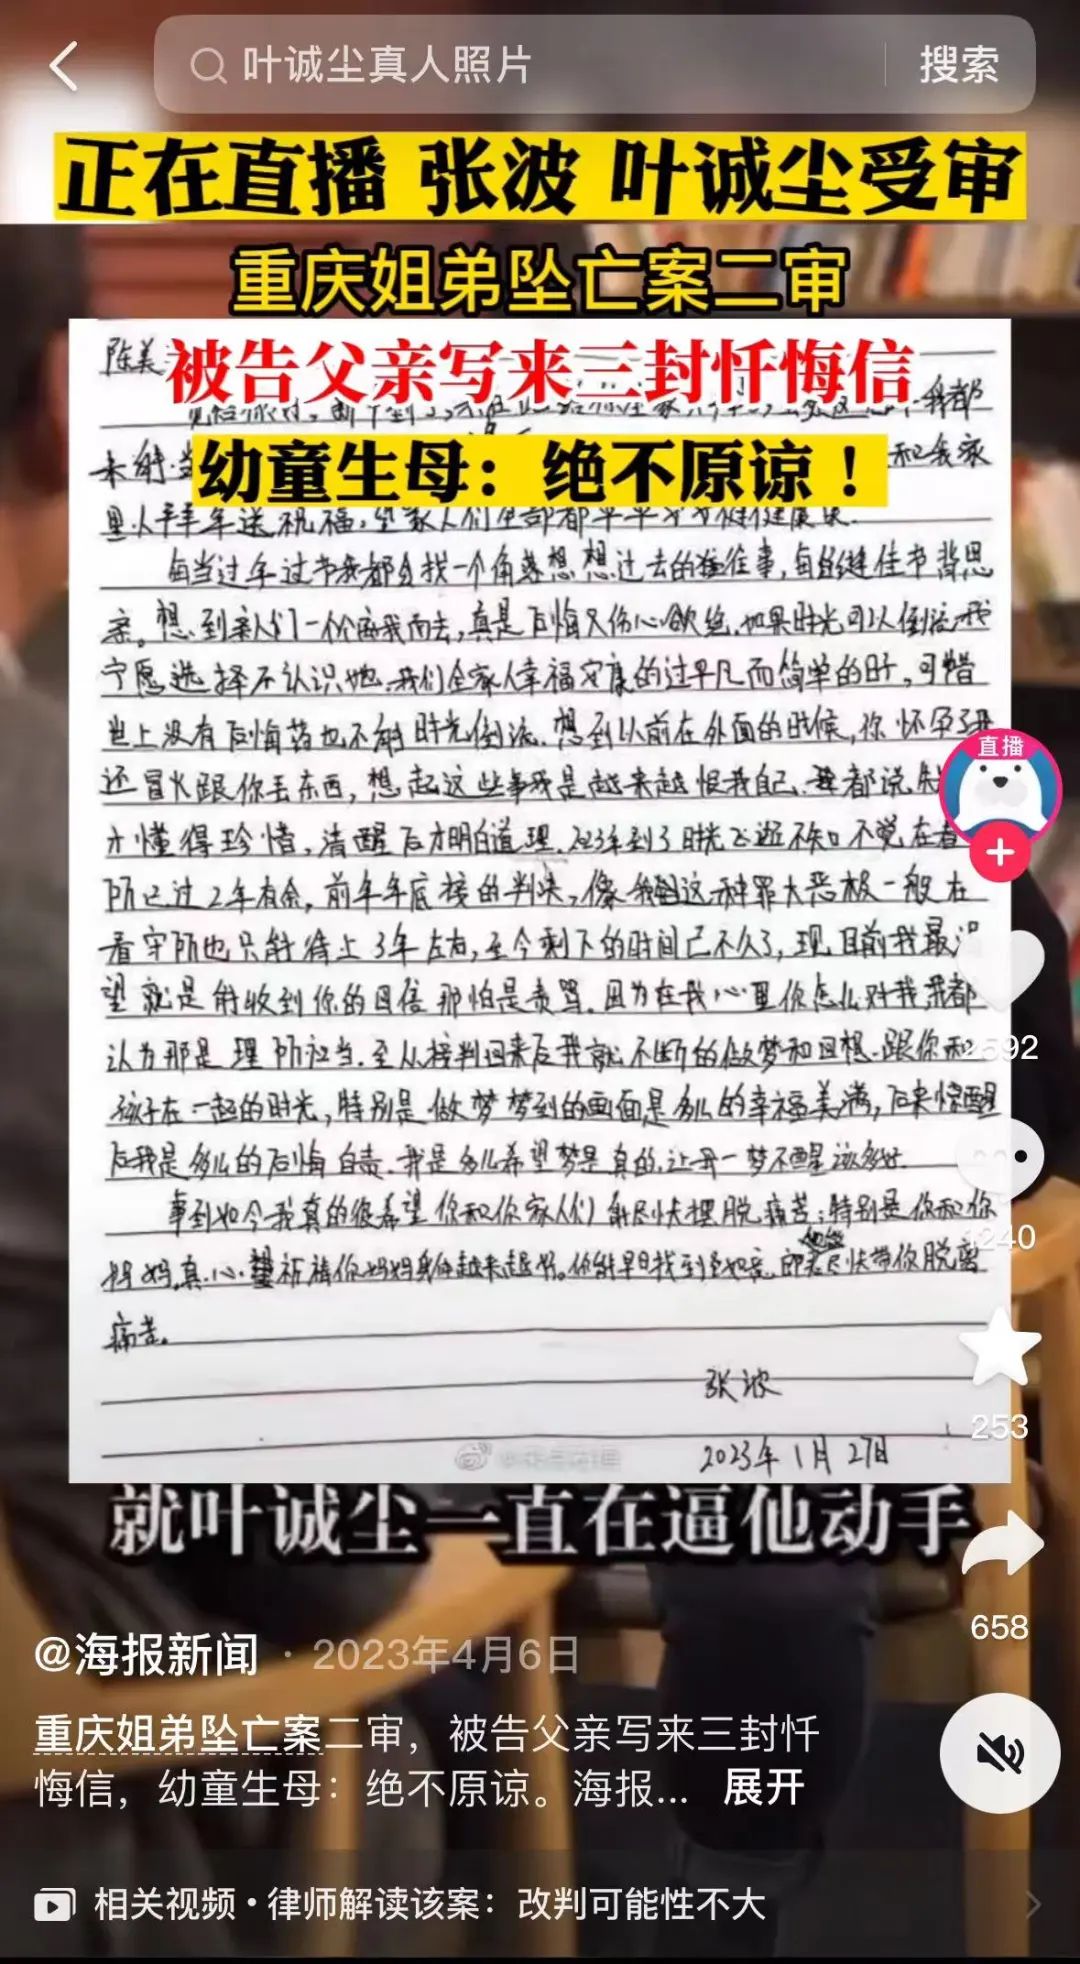 叶诚尘真人照片
搜索
正在直播 张波 叶诚尘受审
重庆姐弟坠亡案二审
陈美
被告父亲写来三封忏悔信
我都
未
幼童生母：绝不原谅！
和我家
里人拜年送祝福,望家人们全部都平平安安健健康康.
每当过年过节我都会找一个角落想想过去的种往事,每逢佳节倍思
亲。想到亲人们一个个离我而去,真是后悔又伤心欲绝.如果时光可以倒流,我
宁愿选择不认识她.我们全家人幸福安康的过平凡而简单的日子,可惜
世上没有后悔药也不能时光倒流.想到以前在外面的时候,你怀孕了我
还冒火跟你丢东西,想起这些事我是越来越恨我自己.都说失
才懂得珍惜,清醒后才明白道理.时光飞逝不知不觉在看
所已过2年有余,前年年底接的判决,像我这种罪大恶极一般在
看守所也只能待上3年左右,至今剩下的时间已不久了,现目前我最
望就是能收到你的回信那怕是责骂.因为在我心里你怎么对我我都
认为那是理所应当.至从接判回来后我就不断的做梦和回想.跟你和
孩子在一起的时光,特别是做梦梦到的画面是多么的幸福美满,后来惊醒
后我是多么的后悔自责.我是多么希望梦是真的,让我一梦不醒该多好.
事到如今我真的很希望你和你家人们能尽快摆脱痛苦;特别是你和你
妈妈.真心祈祷你妈妈身体越来越好。你能早日找到 尽快带你脱离
痛苦。
张波
2023年1月27日
就叶诚尘一直在逼他动手
直播
2592
1240
253
658
@海报新闻 · 2023年4月6日
重庆姐弟坠亡案二审，被告父亲写来三封忏
悔信，幼童生母：绝不原谅。海报... 展开
相关视频 • 律师解读该案：改判可能性不大